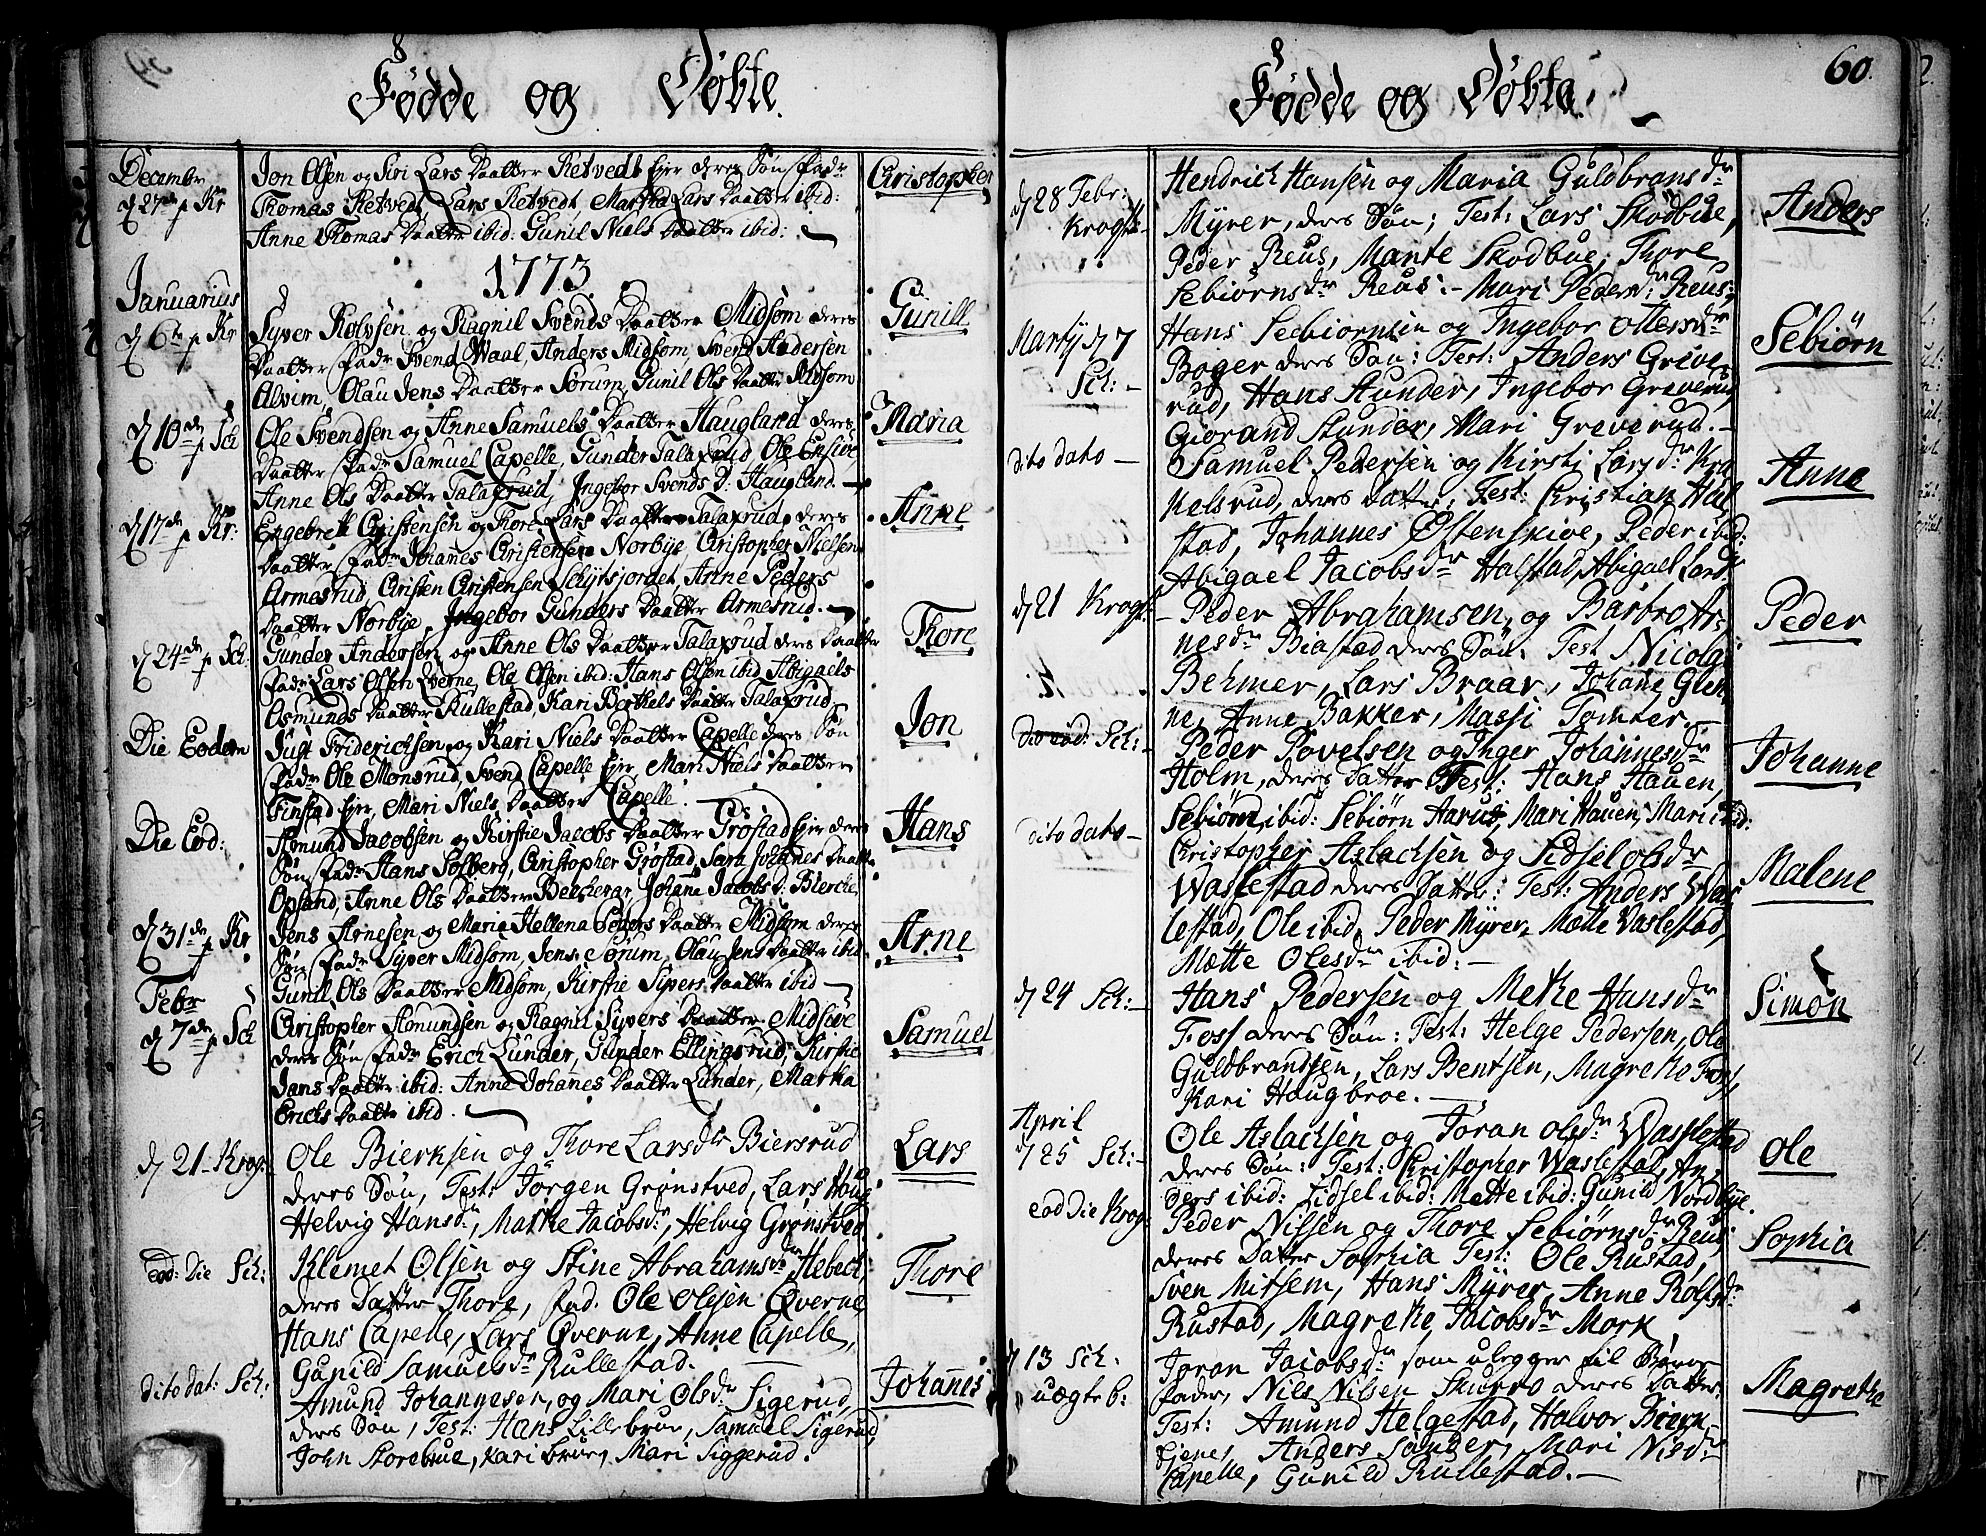 Fødde og Døbte.
Decembr
d 27de p Kr
Jon Olsen og Siri Lars Daatter Retvedt Ejer deres Søn Fadr
Thomas Retvedt Lars Retvedt, Martha Lars Daatter ibid:
Anne Thomas Daatter ibid: Gunil Niels Daatter ibid:
Christopher
1773
Januarius
d 6te p Kr
Syver Rolvsen og Ragnil Svends Daatter Midsom deres
Daatter Fadr Svend Waal, Anders Midsom, Svend Andersen
Alvim, Olau Jens Daatter Sørum, Gunil Ols Daatter Midsom
Gunill
d 10de p Sch
Ole Svendsen og Anne Samuels Daatter Haugland deres
Daatter Fadr Samuel Capelle, Gunder Talaxrud Ole Ensiøe,
Anne Ols Daatter Talaxrud, Ingebor Svends D: Haugland.
Maria
d 17de p Kr:
Engebrett Christensen og Thore Lars Daatter Talaxrud, deres
Daatter Fadr Johanes Christensen Norbye, Christopher Nielsen
Armesrud, Christen Christensen Schytsjordet, Anne Peders
Daatter Norbye, Ingebor Gunders Daatter Armesrud.
Anne
d 24de p Sch:
Gunder Andersen og Anne Ols Daatter Talaxrud deres Daatter
Fadr Lars Olsen Qverne, Ole Olsen ibid: Hans Olsen ibid Abigaels
Osmunds Daatter Kullestad, Kari Berthels Daatter Talaxrud
Thore
Die Eodem
Just Friderichsen og Kari Niels Daatter Capelle deres Søn
Fadr Ole Monsrud, Svend Capelle Ejer, Mari Niels Daatter
Finstad Ejer, Mari Niels Daatter Capelle.
Jon
Die Eod:
Amund Jacobsen og Kirstie Jacobs Daatter Grøstad Ejer deres
Søn Fadr Hans Solberg, Christopher Grøstad, Sara Johanes Daatter
Opsand, Anne Ols Daatter Belcherar, Johane Jacobs D: Bierche
Hans
d 31de p Kr
Jens Arnesen og Maria Hellena Peders Daatter Midsom deres
Søn Fadr Syver Midsom, Jens Sørum, Olau Jens Daatter ibid
Gunil Ols Daatter Midsom, Kirstie Syvers Daatter ibid
Arne
Febr
d 7de p Sch
Christopher Asmundsen og Ragnil Syvers Daatter Midsiøe
deres Søn Fadr Erich Lunder, Gunder Ellingsrud, Kirstie
Jans Daatter ibid: Anne Johanes Daatter Lunder, Martha
Erichs Daatter ibid.
Samuel
d 21 Krog:
Ole Bierksen og Thore Larsdtr Biersrud
deres Søn, Test: Jørgen Grønstved, Lars Houg
Helvig Hansdr, Marthe Jacobsdr, Helvig Grønstved
Lars
eod: Die Sch:
Klemet Olsen og Stine Abrahamsdr Hebech
deres Datter Thore, Fad. Ole Olsen Qverne,
Hans Capelle, Lars Qverne, Anne Capelle,
Gunild Samuelsdr Kullestad.
Thore
dito dat: Sch:
Amund Johannesen, og Mari Olsdr Sigerud
deres Søn, Test: Hans Lillebrue, Samuel Sigerud
John Storebrue, Kari brue, Mari Siggerud.
Johannes
Fødde og Døbte.
60.
d 28 Febr:
Krogst:
Hendrich Hansen og Maria Guldbransdr
Myrer, deres Søn; Test: Lars Skodbue,
Peder Reus, Marthe Skodbue, Thore
Sebiørnsdr Reus. Mari Pedersd: Reus
Anders
Martij d 7
Sch:
Hans Sebiørnsen og Ingebor Ottersdr
Boger deres Søn: Test: Anders Grive
rud, Hans Stunder, Ingebor Greverud,
Giorand Stunder, Mari Greverud.
Sebiørn
dito dato
Samuel Pedersen og Kirsti Larsdr Kra
kelsrud, deres Datter, Test: Christian Hal
stad, Johannes Østenskive, Peder ibid:
Abigael Jacobsdr Halstad, Abigael Larsdr
Anna
d 21 Krogst:
Peder Abrahamsen, og Barbro Ar:
nesdr Biastad deres Søn. Test Nicolai
Behmer, Lars Braar, Johane Glen
ne, Anne Bakker, Massi Tomter.
Peder
die eod: Sch:
Peder Povelsen og Inger Johannesdr
Holm, deres Datter Test: Hans Hauen,
Sebiørn ibid: Sebiørn Aarus, Mari Hauen, Mari ibid:
Johanne
dito dato
Christopher Aslachsen og Sidsel olsdr
Waslestad deres Datter: Test: Anders Was
lestad, Ole ibid, Peder Myrer, Mætte Vaslestad,
Mætte Olesdr ibid:
Malene
d 24 Sch:
Hans Pedersen og Methe Hansdr
Foss deres Søn: Test: Helge Pedersen, Ole
Guldbrandsen, Lars Bentsen, Magrethe Foss,
Kari Haugbroe.
Simon
April
d 25 Sch:
Ole Aslachsen og Jøran olsdr Wasslestad
deres Søn: Test: Christopher Waslestad, An,
ders ibid: Sidsel ibid: Mette ibid: Gunild Nordbye.
Ole
eod Die Krog:
Peder Nilsen og Thore Sebiørnsdr Reus
deres Datter Sophia Test: Ole Rustad,
Sven Mitsem, Hans Myrer, Anne Rolfsdr
Rustad, Magrethe Jacobsdr Mork,
Sophia
d 13 Sch:
uægte b:
Jøran Jacobsdr som ulegger til Barne
fader, Nils Nilsen Skurro deres Datter,
Test: Amund Helgestad, Halvor Bierk
tjenes, Anders Sander, Mari Nilsdr
Capelle, Gunild Kullestad.
Magrethe